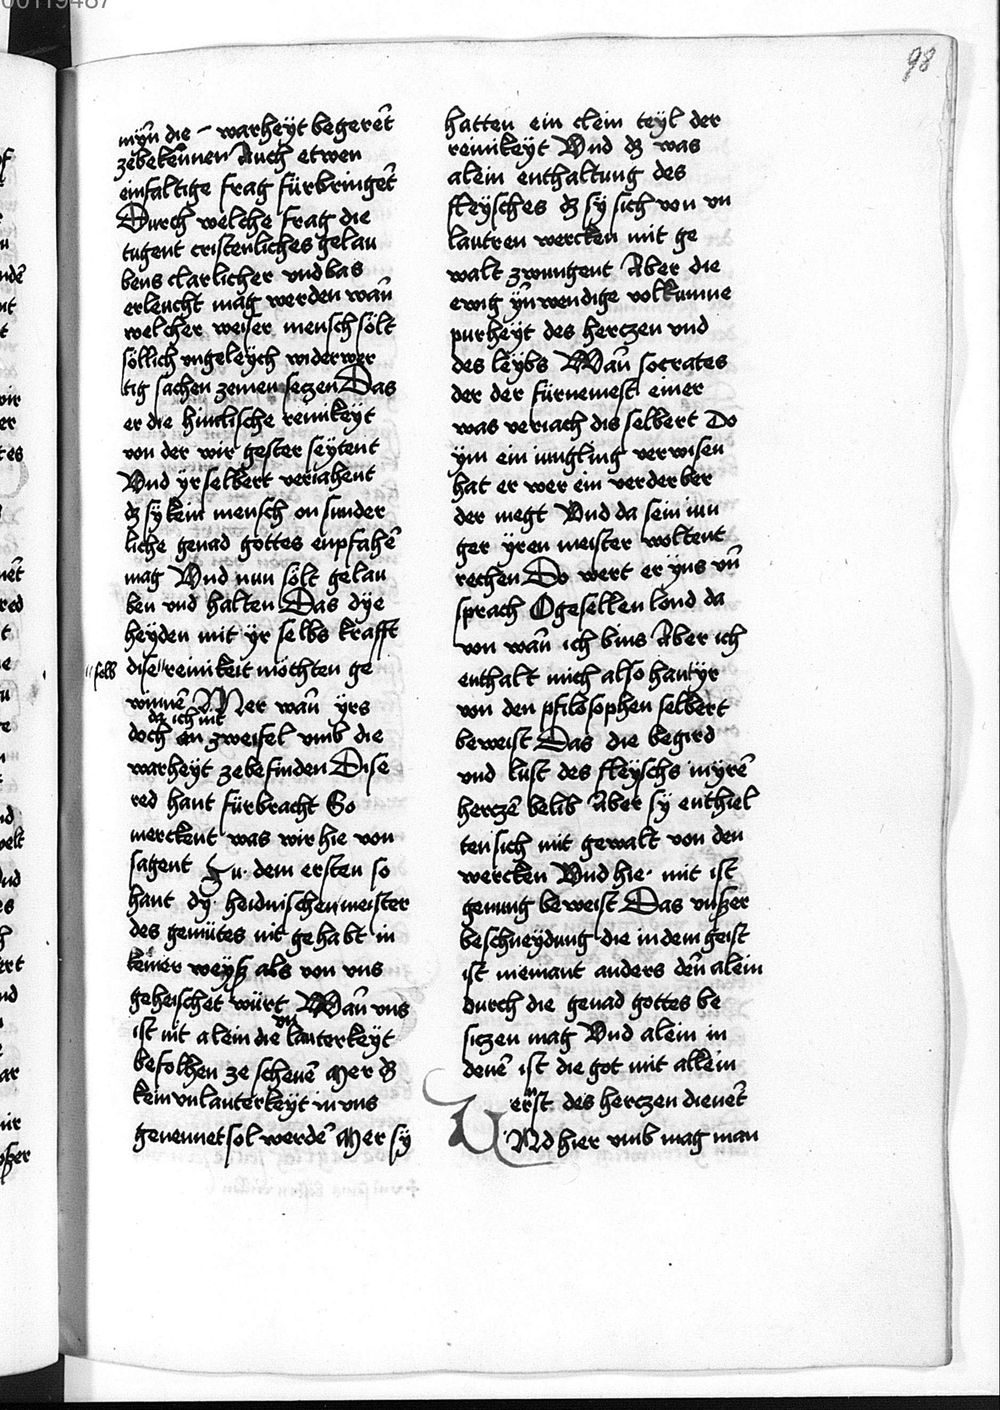 00119487
98
mẏn̄ die – warheẏt begerēt
zebekeñnen Auch etwen
einfaltige frag fürbringēt
Durch welche frag die
tugent cristenliches gelau
bens clarlicher vnd bas
erleucht mag werden wan̄
welcher weiser mensch sölt
söllich vngeleẏch widerwer
tig sachen zemen seczen Das
er die himlische reinikeẏt
von der wir gester seẏtent
Vnd ẏr selbert veriahent
dz sẏ kein mensch on sunder
liche genad gottes enpfahē
mag Vnd nun sölt gelau
ben vnd halten Das dẏe
heẏden mit ẏr selbs krafft
" selb dise " reinikeit möchten ge
winnē Mer wan̄ ẏrs
dz ich nit
doch an zweifel vmb die
warheẏt zebefinden Dise
red hant fürbracht So
merckent was wir hie von
sagent Zu dem ersten so
hant dẏ heidnischen meister
des gemütes nit gehabt in
keiner weẏß als von vns
geheischet würt Wan̄ vns
ist nit alein die vn lauterkeẏt
befolhen ze schenē Mer dz
kein vnlauterkeẏt in vns
genennet sol werdē Mer sẏ
hatten ein clein teẏl der
reinikeẏt Vnd dz was
alein enthaltung des
fleẏsches dz sẏ sich von vn
lautren wercken mit ge
walt zwungent Aber die
ewig ẏn̄wendige volkumne
purheẏt des herczen vnd
des leẏbs Wan̄ socrates
der der fürnemest einer
was veriach dis selbert Do
ẏm ein iungling verwisen
hat er wer ein verderber
der megt Vnd da sein iun
ger ẏren meister woltent
rechen Do wert er ẏns vn̄
sprach O gesellen lond da
von wan̄ ich bins Aber ich
enthalt mich also hant ẏr
von den philosophen selbert
beweist Das die begird
vnd lust des fleẏschs in ẏrē
herczē belib Aber sẏ enthiel
ten sich mit gewalt von den
wercken Vnd hie mit ist
genung beweist Das vnßer
beschneẏdung die in dem geist
ist niemant anders den̄ alein
durch die genad gottes be
siczen mag Vnd alein in
denē ist die got mit allein
ernst des herczen dienēt
VNd hier vmb mag man